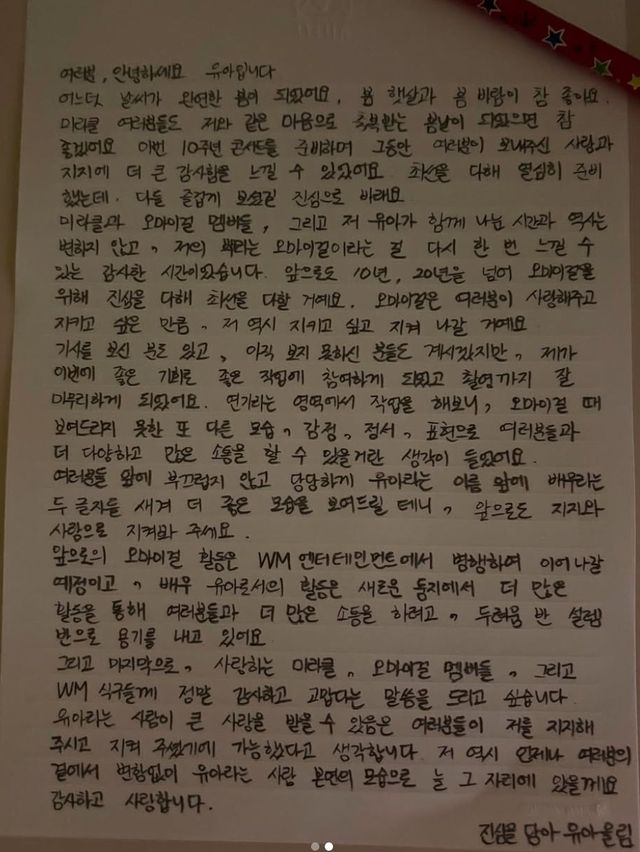 여러분, 안녕하세요 유아입니다
어느덧 날씨가 완연한 봄이 되었어요, 봄 햇살과 봄 바람이 참 좋아요.
미라클 여러분들도 저와 같은 마음으로 축복받는 봄날이 되었으면 참
좋겠어요 이번 10주년 콘서트를 준비하며 그동안 여러분이 보내주신 사랑과
지지에 더 큰 감사함을 느낄 수 있었어요 최선을 다해 열심히 준비
했는데. 다들 즐겁게 보셨길 진심으로 바래요
미라클과 오마이걸 멤버들, 그리고 저 유아가 함께 나눈 시간과 역사는
변하지 않고, 저의 뿌리는 오마이걸이라는 걸 다시 한 번 느낄 수
있는 감사한 시간이었습니다. 앞으로도 10년, 20년을 넘어 오마이걸을
위해 진심을 다해 최선을 다할 거예요. 오마이걸은 여러분이 사랑해주고
지키고 싶은 만큼, 저 역시 지키고 싶고 지켜 나갈 거예요
기사를 보신 분도 있고, 아직 보지 못하신 분들도 계시겠지만, 제가
이번에 좋은 기회로 좋은 작업에 참여하게 되었고 촬영까지 잘
마무리하게 되었어요. 연기라는 영역에서 작업을 해보니, 오마이걸 때
보여드리지 못한 또 다른 모습, 감정, 정서, 표현으로 여러분들과
더 다양하고 많은 소통을 할 수 있을거란 생각이 들었어요.
여러분들 앞에 부끄럽지 않고 당당하게 유아라는 이름 앞에 배우라는
두 글자를 새겨 더 좋은 모습을 보여드릴 테니, 앞으로도 지지와
사랑으로 지켜봐 주세요.
앞으로의 오마이걸 활동은 WM엔터테인먼트에서 병행하여 이어나갈
예정이고, 배우 유아로서의 활동은 새로운 둥지에서 더 많은
활동을 통해 여러분들과 더 많은 소통을 하려고, 두려움 반 설렘
반으로 용기를 내고 있어요
그리고 마지막으로, 사랑하는 미라클, 오마이걸 멤버들, 그리고
WM 식구들께 정말 감사하고 고맙다는 말씀을 드리고 싶습니다
유아라는 사람이 큰 사랑을 받을 수 있음은 여러분들이 저를 지지해
주시고 지켜 주셨기에 가능했다고 생각합니다. 저 역시 언제나 여러분의
곁에서 변함없이 유아라는 사람 본연의 모습으로 늘 그 자리에 있을게요
감사하고 사랑합니다.
진심을 담아 유아올림